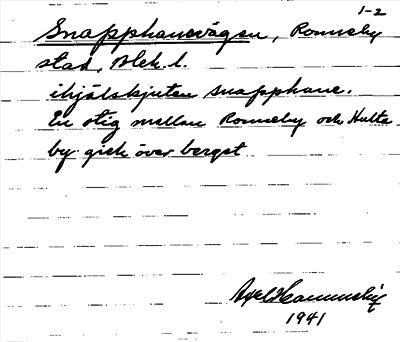 1-2
Snapphanevägen, Ronneby
stad, Blek. l.
ihjälskjuten snapphane.
En stig mellan Ronneby och Hulta
by gick över berget
Axel
1941